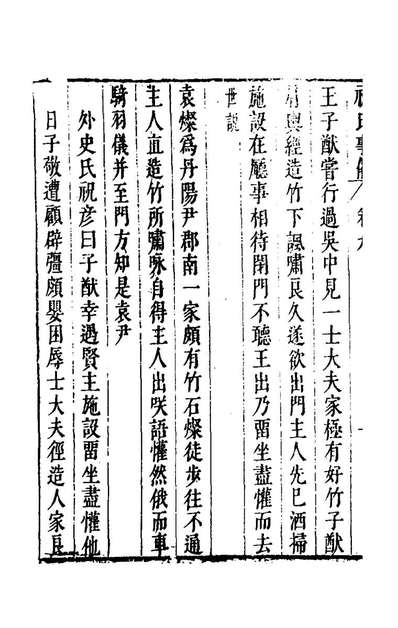 祝氏事偶 卷九
王子猷嘗行過吳中見一士大夫家極有好竹子猷
肩輿經造竹下諷嘯良久遂欲出門主人先已洒掃
施設在廳事相待閉門不聽王出乃畱坐盡懽而去
世說
袁燦爲丹陽尹郡南一家頗有竹石燦徒步往不通
主人直造竹所嘯咏自得主人出咲語懽然俄而車
騎羽儀并至門方知是袁尹
外史氏祝彦曰子猷幸遇賢主施設畱坐盡懽他
日子敬遭顧辟彊頗嬰困辱士大夫徑造人家良